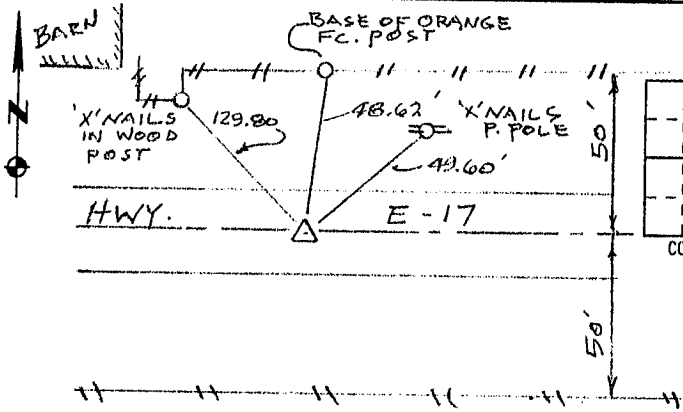 BARN
BASE OF ORANGE
FC. POST
N
'X' NAILS
IN WOOD
POST
129.80
48.62'
'X' NAILS
P. POLE
49.60'
50'
HWY.
E-17
50'